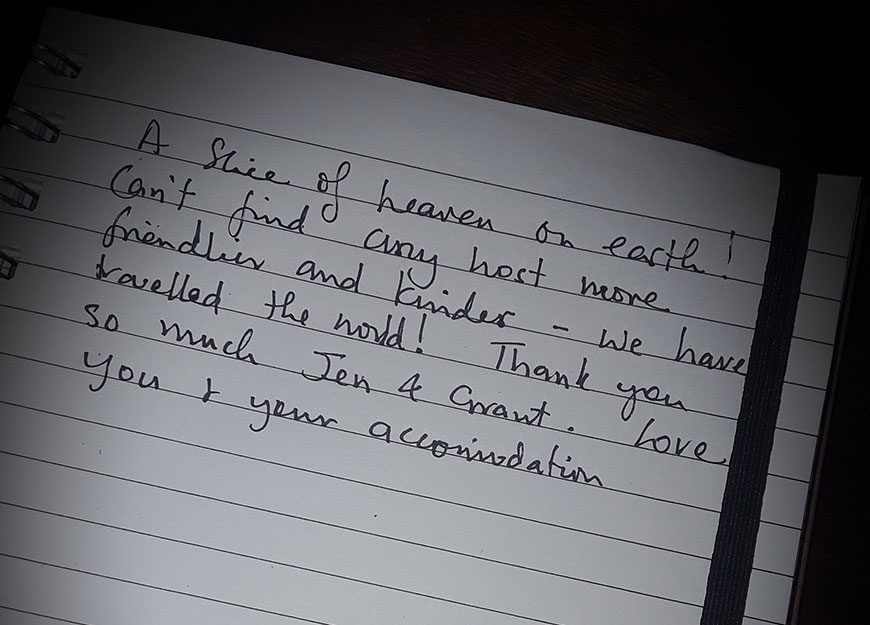 A Slice of heaven on earth!
Can't find any host more
friendlier and kinder – We have
travelled the world! Thank you
so much Jen & Grant. Love
you & your accomodation